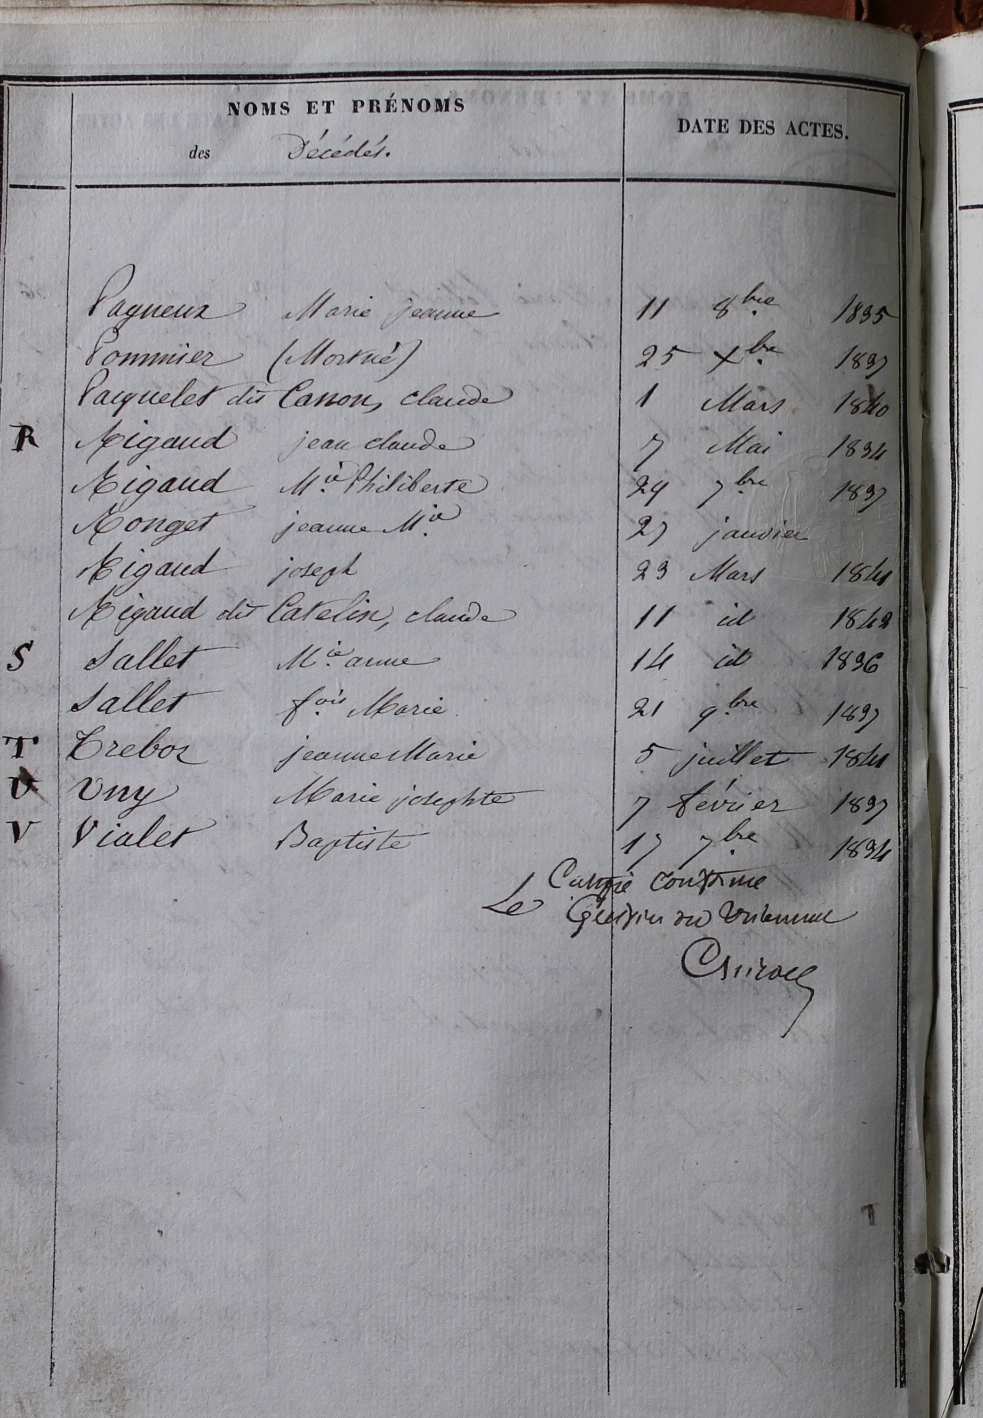 NOMS ET PRÉNOMS
des Décédés.
DATE DES ACTES.
Pagneux Marie jeanne 11 8bre 1835
Pommier (Mortné) 25 Xbre 1837
Pacquelet dit Canon, claude 1 Mars 1840
R Rigaud jean claude 7 Mai 1834
Rigaud Mie Philiberte 29 7bre 1837
Ronget jeanne Mie 27 janvier
Rigaud joseph 23 Mars 1841
Rigaud dit Catelin, claude 11 id 1842
S Sallet Mie anne 14 id 1836
Sallet fois Marie 21 9bre 1837
T Treboz jeanne Marie 5 juillet 1841
U Uny Marie josephte 7 février 1837
V Vialet Baptiste 17 7bre 1834
Certifié conforme
Le Greffier du Tribunal